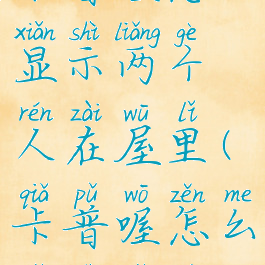 xiǎn shì liǎng gè
显示两个
rén zài wū lǐ
人在屋里(
qiǎ pǔ wō zěn me
卡普喔怎么